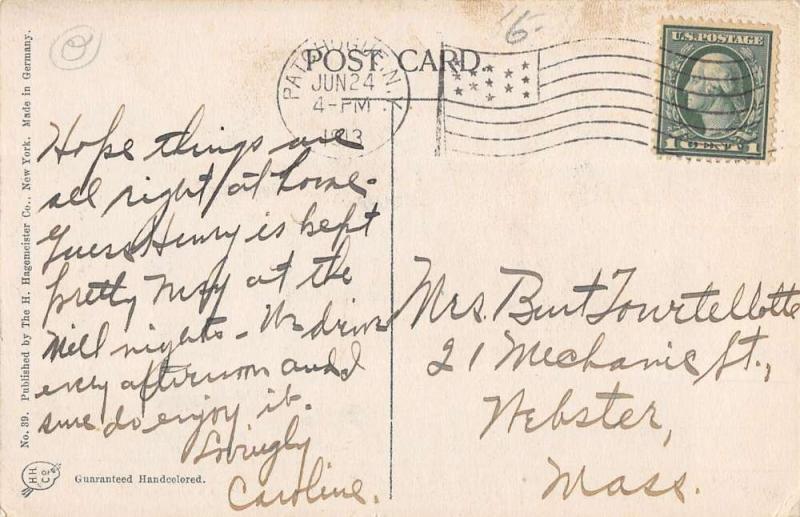 No. 39. Published by The H. Hagemeister Co., New York. Made in Germany.
POST CARD.
PATCHOGUE N.Y.
JUN 24
4-PM
1913
U.S. POSTAGE
1 CENT 1
Hope things are
all right at home-
Guess Henry is kept
pretty busy at the
Mill nights- We drive
every afternoon and
sure do enjoy it.
Lovingly
Caroline.
Mrs. Burt Tourtellotte
21 Mechanic St.,
Webster,
Mass.
H.H.
Co.
Guaranteed Handcolored.